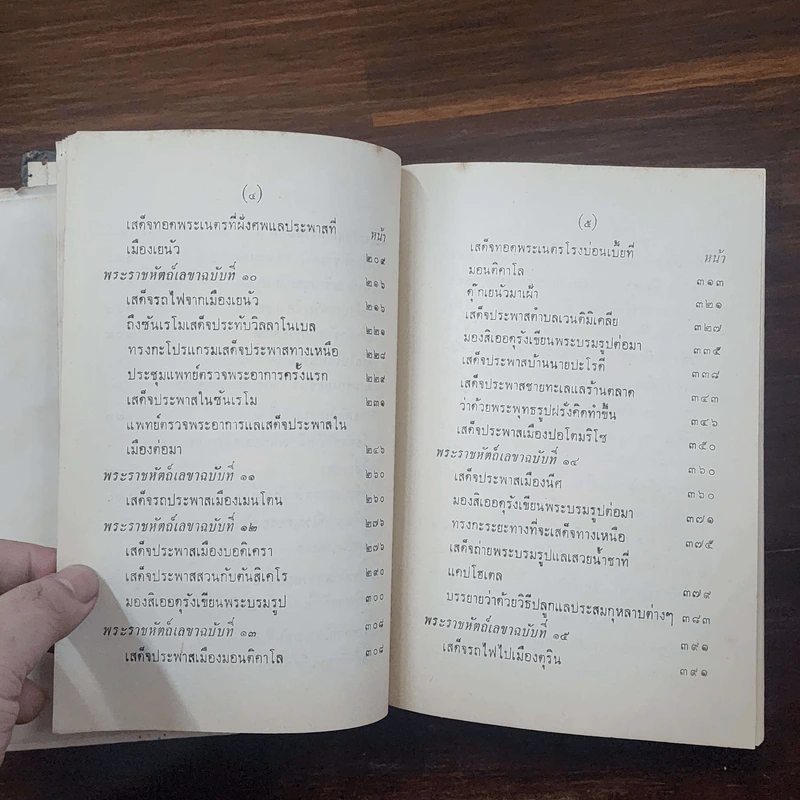 (๔)
หน้า
เสด็จทอดพระเนตรที่ฝังศพแลประพาสที่
เมืองเยนัว ๒๐๙
พระราชหัตถ์เลขาฉบับที่ ๑๐ ๒๑๖
เสด็จรถไฟจากเมืองเยนัว ๒๑๖
ถึงซันเรโมเสด็จประทับวิลลาโนเบล ๒๒๑
ทรงกะโปรแกรมเสด็จประพาสทางเหนือ ๒๒๘
ประชุมแพทย์ตรวจพระอาการครั้งแรก ๒๒๙
เสด็จประพาสในซันเรโม ๒๓๑
แพทย์ตรวจพระอาการแลเสด็จประพาสใน
เมืองต่อมา ๒๔๖
พระราชหัตถ์เลขาฉบับที่ ๑๑ ๒๖๐
เสด็จรถประพาสเมืองเมนโตน ๒๖๐
พระราชหัตถ์เลขาฉบับที่ ๑๒ ๒๗๖
เสด็จประพาสเมืองบอดิเครา ๒๗๖
เสด็จประพาสสวนกับตันสิเคโร ๒๙๐
มองสิเออดุรังเขียนพระบรมรูป ๓๐๐
พระราชหัตถ์เลขาฉบับที่ ๑๓ ๓๐๘
เสด็จประพาสเมืองมอนติคาโล ๓๐๘
(๕)
หน้า
เสด็จทอดพระเนตรโรงบ่อนเบี้ยที่
มอนติคาโล ๓๑๓
ดุ๊กเยนัวมาเฝ้า ๓๒๑
เสด็จประพาสตำบลเวนติมิเคลีย ๓๒๗
มองสิเออดุรังเขียนพระบรมรูปต่อมา ๓๓๕
เสด็จประพาสบ้านนายปะโรดี ๓๓๘
เสด็จประพาสชายทะเลแลร้านตลาด ๓๔๓
ว่าด้วยพระพุทธรูปฝรั่งคิดทำขึ้น ๓๔๖
เสด็จประพาสเมืองปอโตมริโซ ๓๕๐
พระราชหัตถ์เลขาฉบับที่ ๑๔ ๓๖๐
เสด็จประพาสเมืองนีศ ๓๖๐
มองสิเออดุรังเขียนพระบรมรูปต่อมา ๓๗๑
ทรงกะระยะทางที่จะเสด็จทางเหนือ ๓๗๕
เสด็จถ่ายพระบรมรูปแลเสวยน้ำชาที่
แคปโฮเตล ๓๗๙
บรรยายว่าด้วยวิธีปลูกแลประสมกุหลาบต่างๆ ๓๘๓
พระราชหัตถ์เลขาฉบับที่ ๑๕ ๓๙๑
เสด็จรถไฟไปเมืองตุริน ๓๙๑